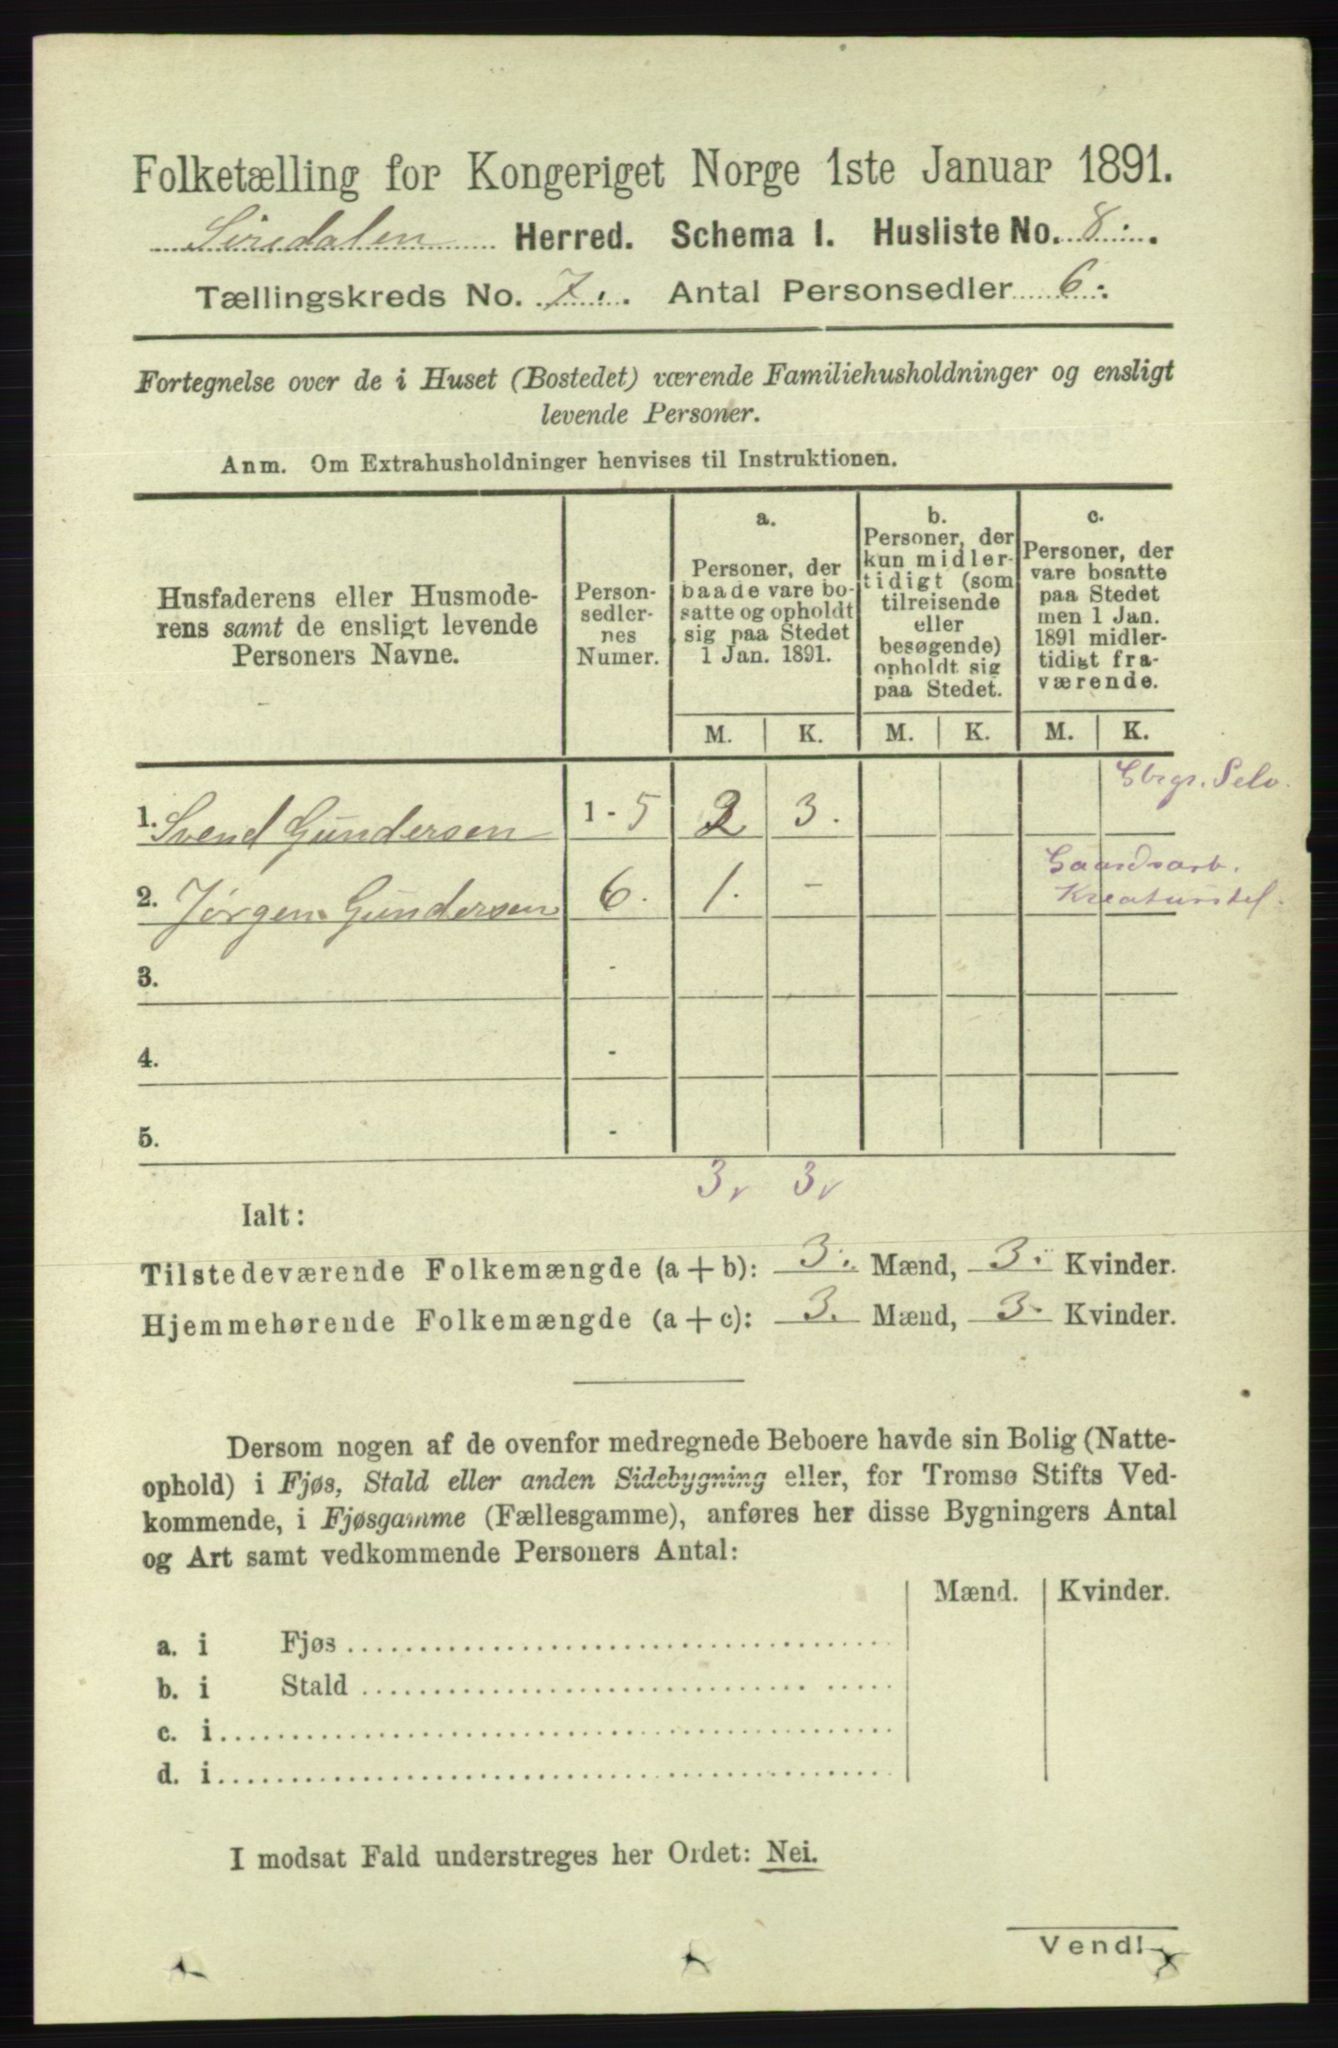 Folketælling for Kongeriget Norge 1ste Januar 1891.
Siredalen Herred. Schema I. Husliste No. 8.
Tællingskreds No. 7. Antal Personsedler 6.
Fortegnelse over de i Huset (Bostedet) værende Familiehusholdninger og ensligt
levende Personer.
Anm. Om Extrahusholdninger henvises til Instruktionen.
Husfaderens eller Husmode-
rens samt de ensligt levende
Personers Navne.
Person-
sedler-
nes
Numer.
a.
Personer, der
baade vare bo-
satte og opholdt
sig paa Stedet
1 Jan. 1891.
b.
Personer, der
kun midler-
tidigt (som
tilreisende
eller
besøgende)
opholdt sig
paa Stedet.
c.
Personer, der
vare bosatte
paa Stedet
men 1 Jan.
1891 midler-
tidigt fra-
værende.
M. K. M. K. M. K.
Gbrgr. Selv.
1. Svend Gundersen 1 - 5 2 3.
Gaardsarb.
2. Jørgen Gundersen 6. 1. - Kreaturstel.
3. -
4. -
5. -
3 v 3 v
Ialt:
Tilstedeværende Folkemængde (a + b): 3. Mænd, 3. Kvinder.
Hjemmehørende Folkemængde (a + c): 3. Mænd, 3. Kvinder.
Dersom nogen af de ovenfor medregnede Beboere havde sin Bolig (Natte-
ophold) i Fjøs, Stald eller anden Sidebygning eller, for Tromsø Stifts Ved-
kommende, i Fjøsgamme (Fællesgamme), anføres her disse Bygningers Antal
og Art samt vedkommende Personers Antal:
Mænd. Kvinder.
a. i Fjøs
b. i Stald
c. i
d. i
I modsat Fald understreges her Ordet: Nei.
Vend!